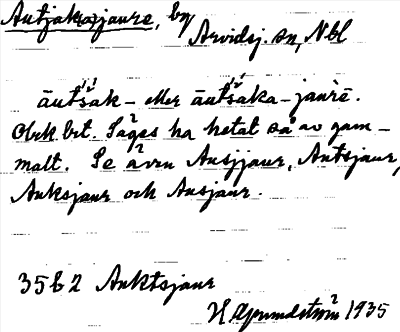 Autjaksjaure, by
Arvidsj. sn, Nbl
āutšak- eller āutšaka-jaurē.
Obek bet. Säges ha hetat så av gam-
malt. Se även Ausjjaur, Autsjaur,
Auksjaur och Ausjaur.
3562 Auktsjaur
H. Grundström 1935